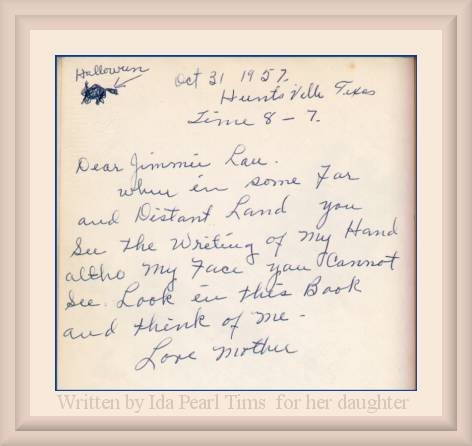 Halloween
Oct 31 1957.
Huntsville Texas
Time 8-7.
Dear Jimmie Lau.
when in some Far
and Distant Land you
See the Writing of My Hand
altho My Face you Cannot
See. Look in this Book
and think of me-
Love Mother
Written by Ida Pearl Tims for her daughter